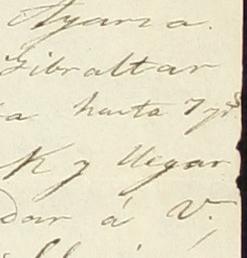 Ayarza.
Gibraltar
a hasta 7 grs
K y llegar
dar á V.